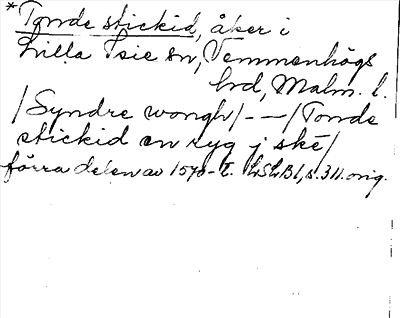 *Tonde stickid, åker i
Lilla Isie sn, Vemmenhögs
hrd, Malm. l.
/Syndre wongh/ - - /Tonde
stickid en ryg j ske/
förra delen av 1570-t. s. 311. orig.